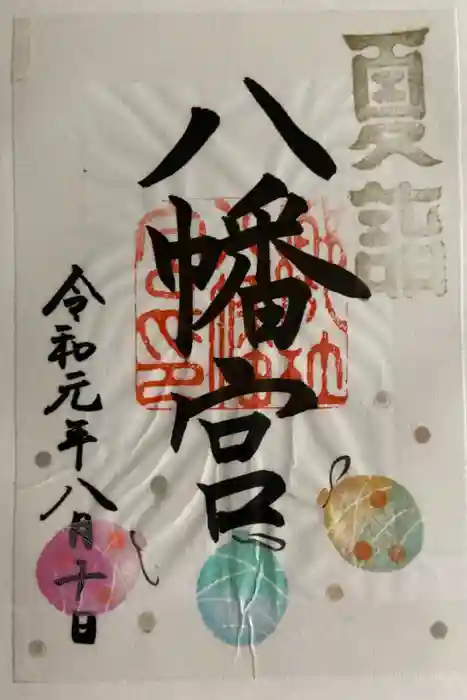 夏詣
八幡宮
令和元年八月十日